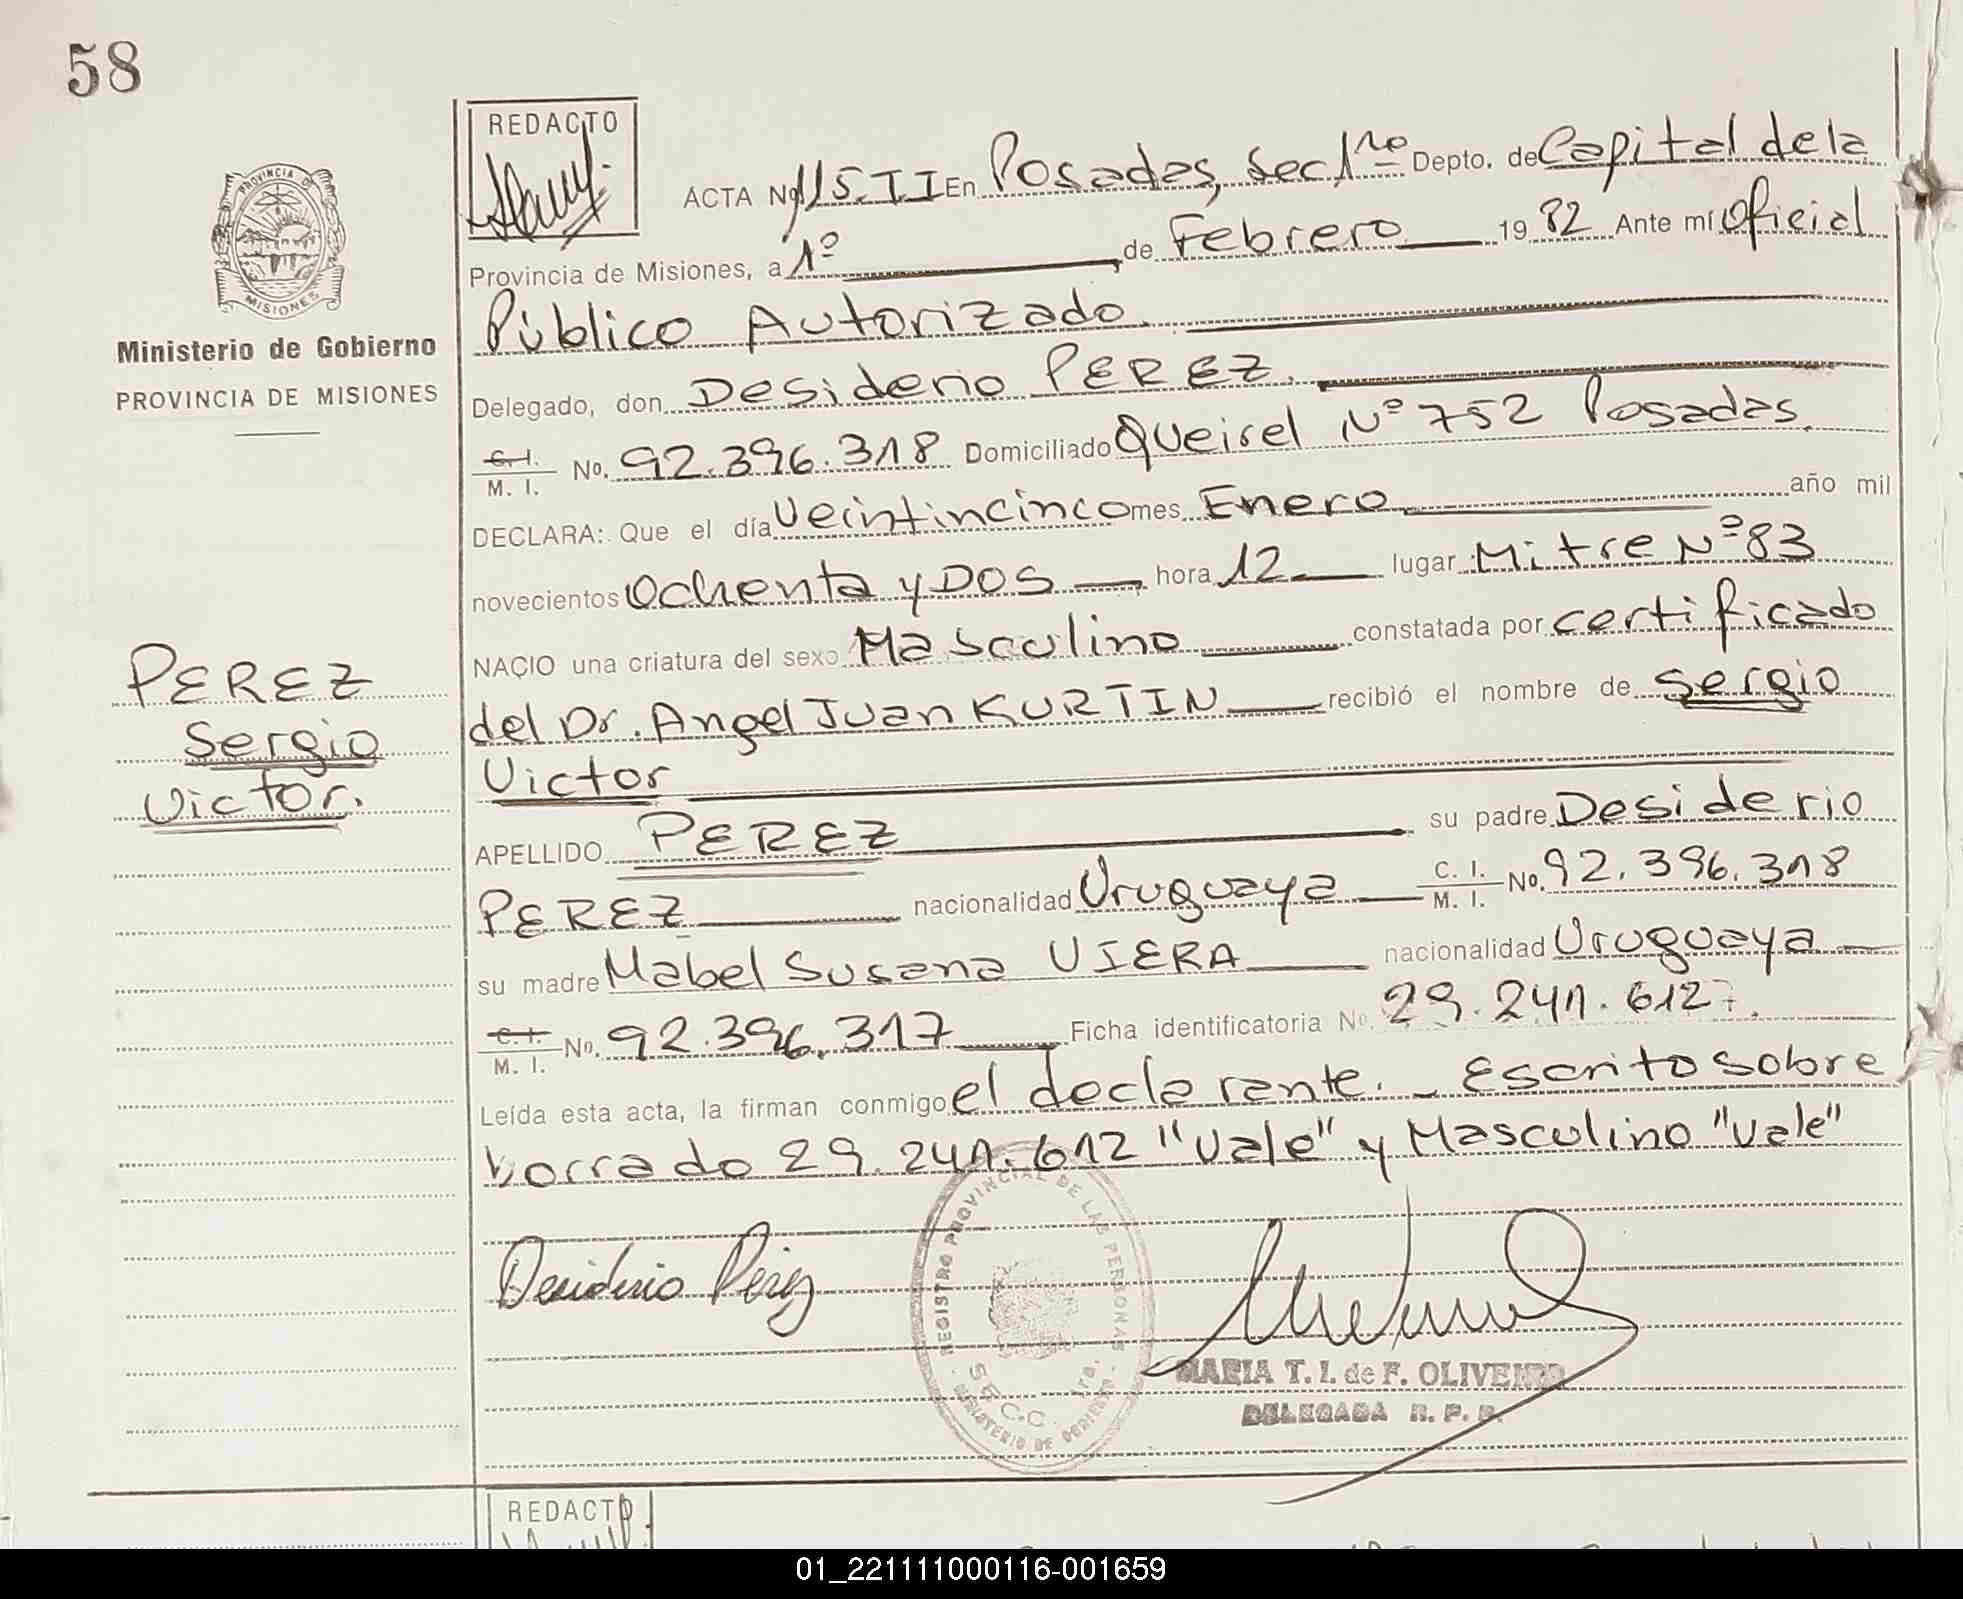 58
REDACTO
PROVINCIA DE
MISIONES
Ministerio de Gobierno
PROVINCIA DE MISIONES
ACTA No 115.II En Posadas, Sec 1ra Depto. de Capital de la
Provincia de Misiones, a 1º de Febrero 19 82 Ante mí Oficial
Público Autorizado.
Delegado, don Desiderio PEREZ.
C.I. M. I. No. 92.396.318 Domiciliado Queirel Nº 752 Posadas.
DECLARA: Que el día Veintincinco mes Enero año mil
novecientos Ochenta y DOS hora 12 lugar Mitre Nº 83
NACIO una criatura del sexo Masculino constatada por certificado
del Dr. Angel Juan KURTIN recibió el nombre de Sergio
Victor
APELLIDO PEREZ su padre Desiderio
PEREZ nacionalidad Uruguaya C. I. M. I. No. 92.396.318
su madre Mabel Susana VIERA nacionalidad Uruguaya
C.I. M. I. No. 92.396.317 Ficha identificatoria No. 29.241.612
Leída esta acta, la firman conmigo el declarante. Escrito sobre
borrado 29.241.612 "Vale" y Masculino "Vale"
PEREZ
Sergio
Victor.
Desiderio Pérez
REGISTRO PROVINCIAL DE LAS PERSONAS
SECC. 1ra.
MINISTERIO DE GOBIERNO
MARIA T. I. de F. OLIVEIRA
DELEGADA R. P. P.
REDACTO
01_221111000116-001659